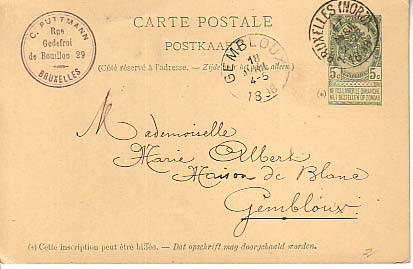 CARTE POSTALE
POSTKAART
C. PUTTMANN
Rue
Godefroi
de Bouillon 29
BRUXELLES
(Côté réservé à l'adresse. — Zijde alleen)
GEMBLOUX
18
4-5
1896
BRUXELLES (NORD)
5c 5c
NE PAS LIVRER LE DIMANCHE
NIET BESTELLEN OP ZONDAG
(+)
Mademoiselle
Marie Albert
Maison de Blanc
Gembloux
(+) Cette inscription peut être biffée. — Dat opschrift mag doorgehaald worden.